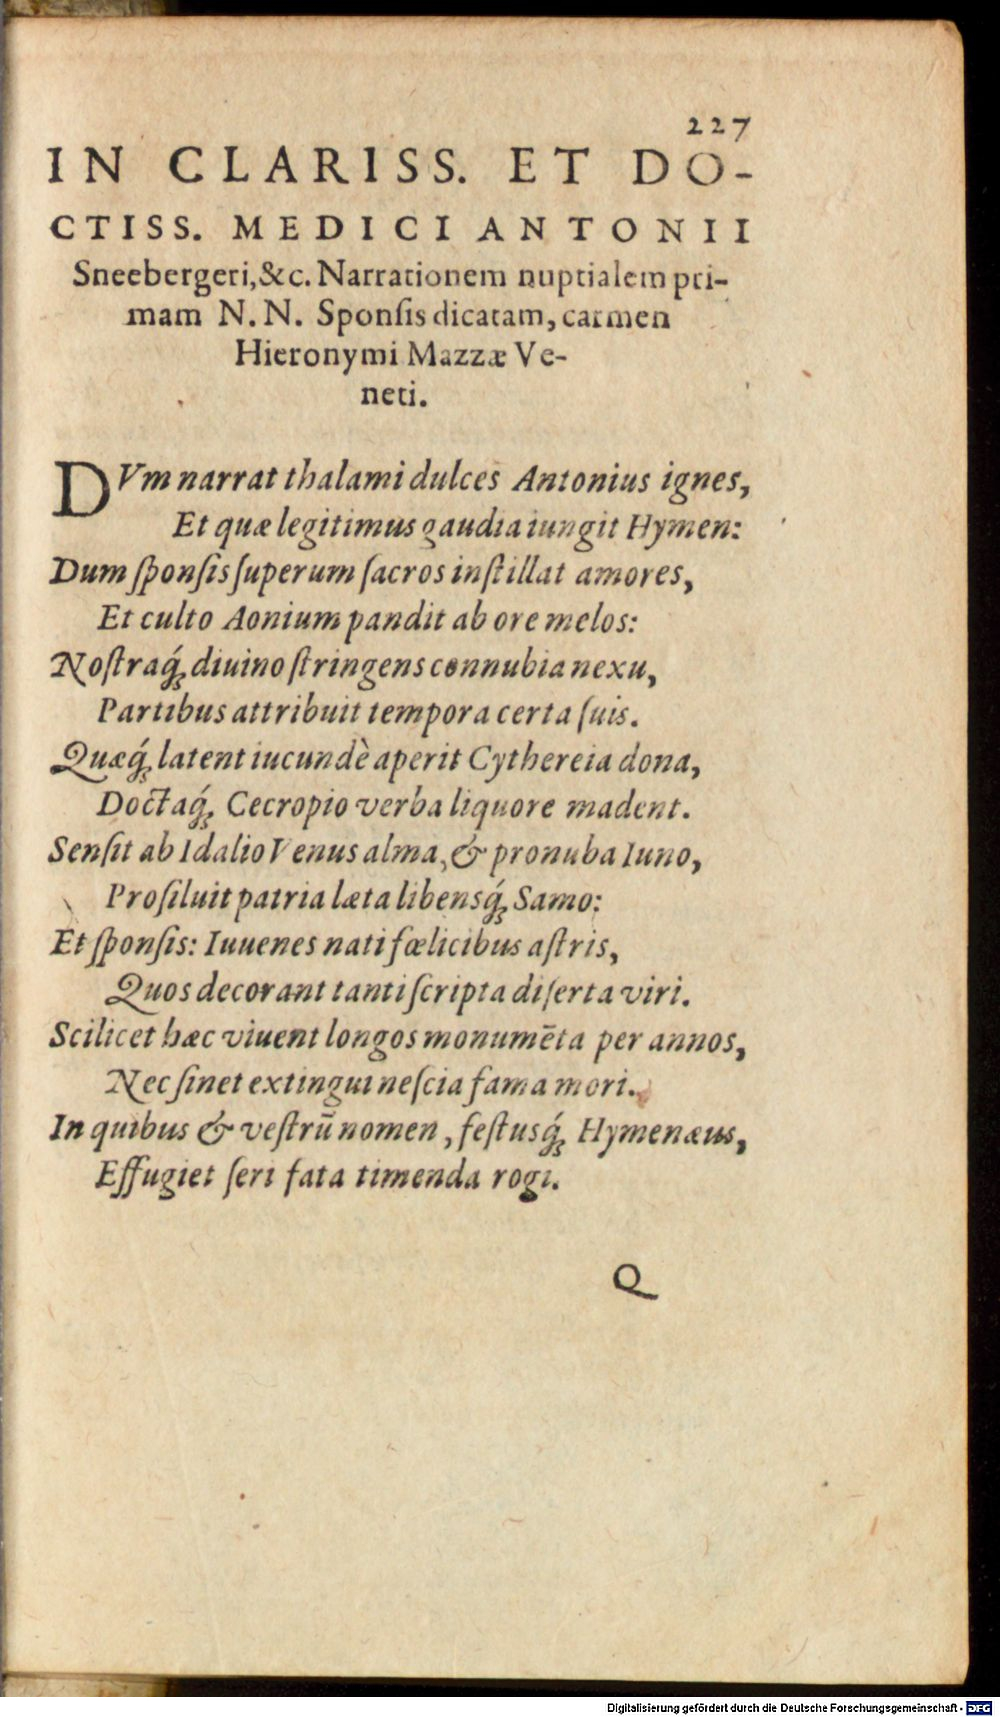 227
IN CLARISS. ET DO-
CTISS. MEDICI ANTONII
Sneebergeri, &c. Narrationem nuptialem pri-
mam N. N. Sponſis dicatam, carmen
Hieronymi Mazzæ Ve-
neti.
DVm narrat thalami dulces Antonius ignes,
Et quæ legitimus gaudia iungit Hymen:
Dum ſponſis ſuperum ſacros inſtillat amores,
Et culto Aonium pandit ab ore melos:
Noſtraq́ꝫ diuino ſtringens connubia nexu,
Partibus attribuit tempora certa ſuis.
Quæq́ꝫ latent iucundè aperit Cythereia dona,
Doctaq́ꝫ Cecropio verba liquore madent.
Senſit ab Idalio Venus alma, & pronuba Iuno,
Proſiluit patria læta libensq́ꝫ Samo:
Et ſponſis: Iuuenes nati fœlicibus aſtris,
Quos decorant tanti ſcripta diſerta viri.
Scilicet hæc viuent longos monumēta per annos,
Nec ſinet extingui neſcia fama mori.
In quibus & veſtrū nomen, feſtusq́ꝫ Hymenæus,
Effugiet ſeri fata timenda rogi.
Q
Digitalisierung gefördert durch die Deutsche Forschungsgemeinschaft - DFG